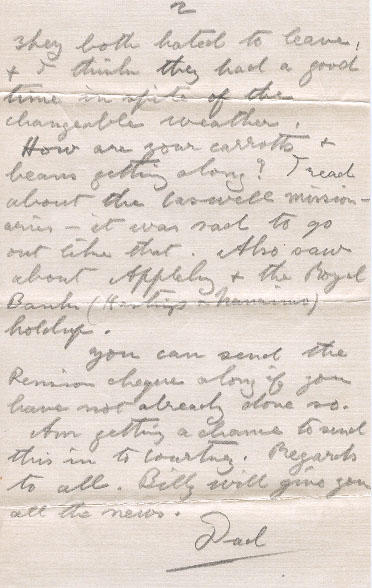 2
They both hated to leave,
& I think they had a good
time in spite of the
changeable weather.
How are your carrotts &
beans getting along? I read
about the Caswell mission-
aries - it was sad to go
out like that. Also saw
about Appleby & the Royal
Bank (Hastings & Nanaimo)
holdup.
You can send the
Pension cheque along if you
have not already done so.
Am getting a chance to send
this in to Courtney. Regards
to all. Billy will give you
all the news.
Dad